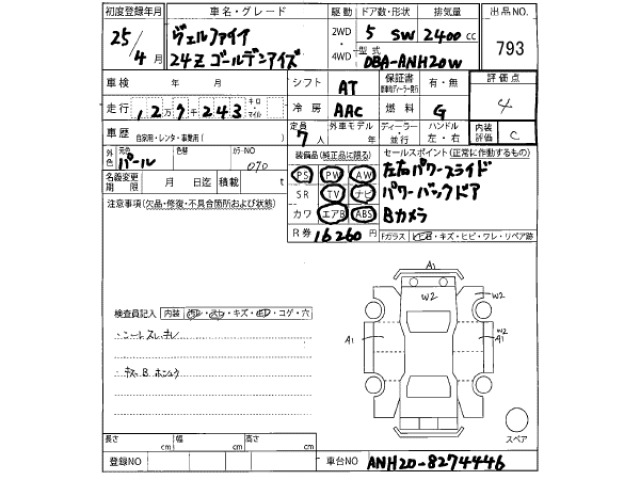 初度登録年月 車名・グレード 駆動 ドア数・形状 排気量 出品NO.
25/4月 ヴェルファイア 2WD・4WD 5 SW 2400cc 793
24Z ゴールデンアイズ 型式 DBA-ANH20W
車検 年 月 シフト AT 保証書 有・無 評価点 4
走行 12万9千243 キロ・マイル 冷房 AAC 燃料 G
車歴 自家用・レンタ・事業用( ) 定員 7人 外車モデル 年 ディーラー・並行 ハンドル 左・右 内装評価 C
外色 元色 パール 色替 カラーNO 070 装備品(純正品に限る) セールスポイント(正常に作動するもの)
名義変更期限 月 日迄 積載 t PS PW AW 左右パワースライド
注意事項(欠品・修復・不具合箇所および状態) SR TV ナビ パワーバックドア
カワ エアB ABS Bカメラ
R券 16260円 Fガラス・キズ・ヒビ・ワレ・リペア跡
A1
W2
W2
検査員記入 内装・キズ・コゲ・穴
W2
A1
A1
キズ B ホシュウ
スペア
長さ cm 幅 cm 高さ cm
登録NO 車台NO ANH20-8274446